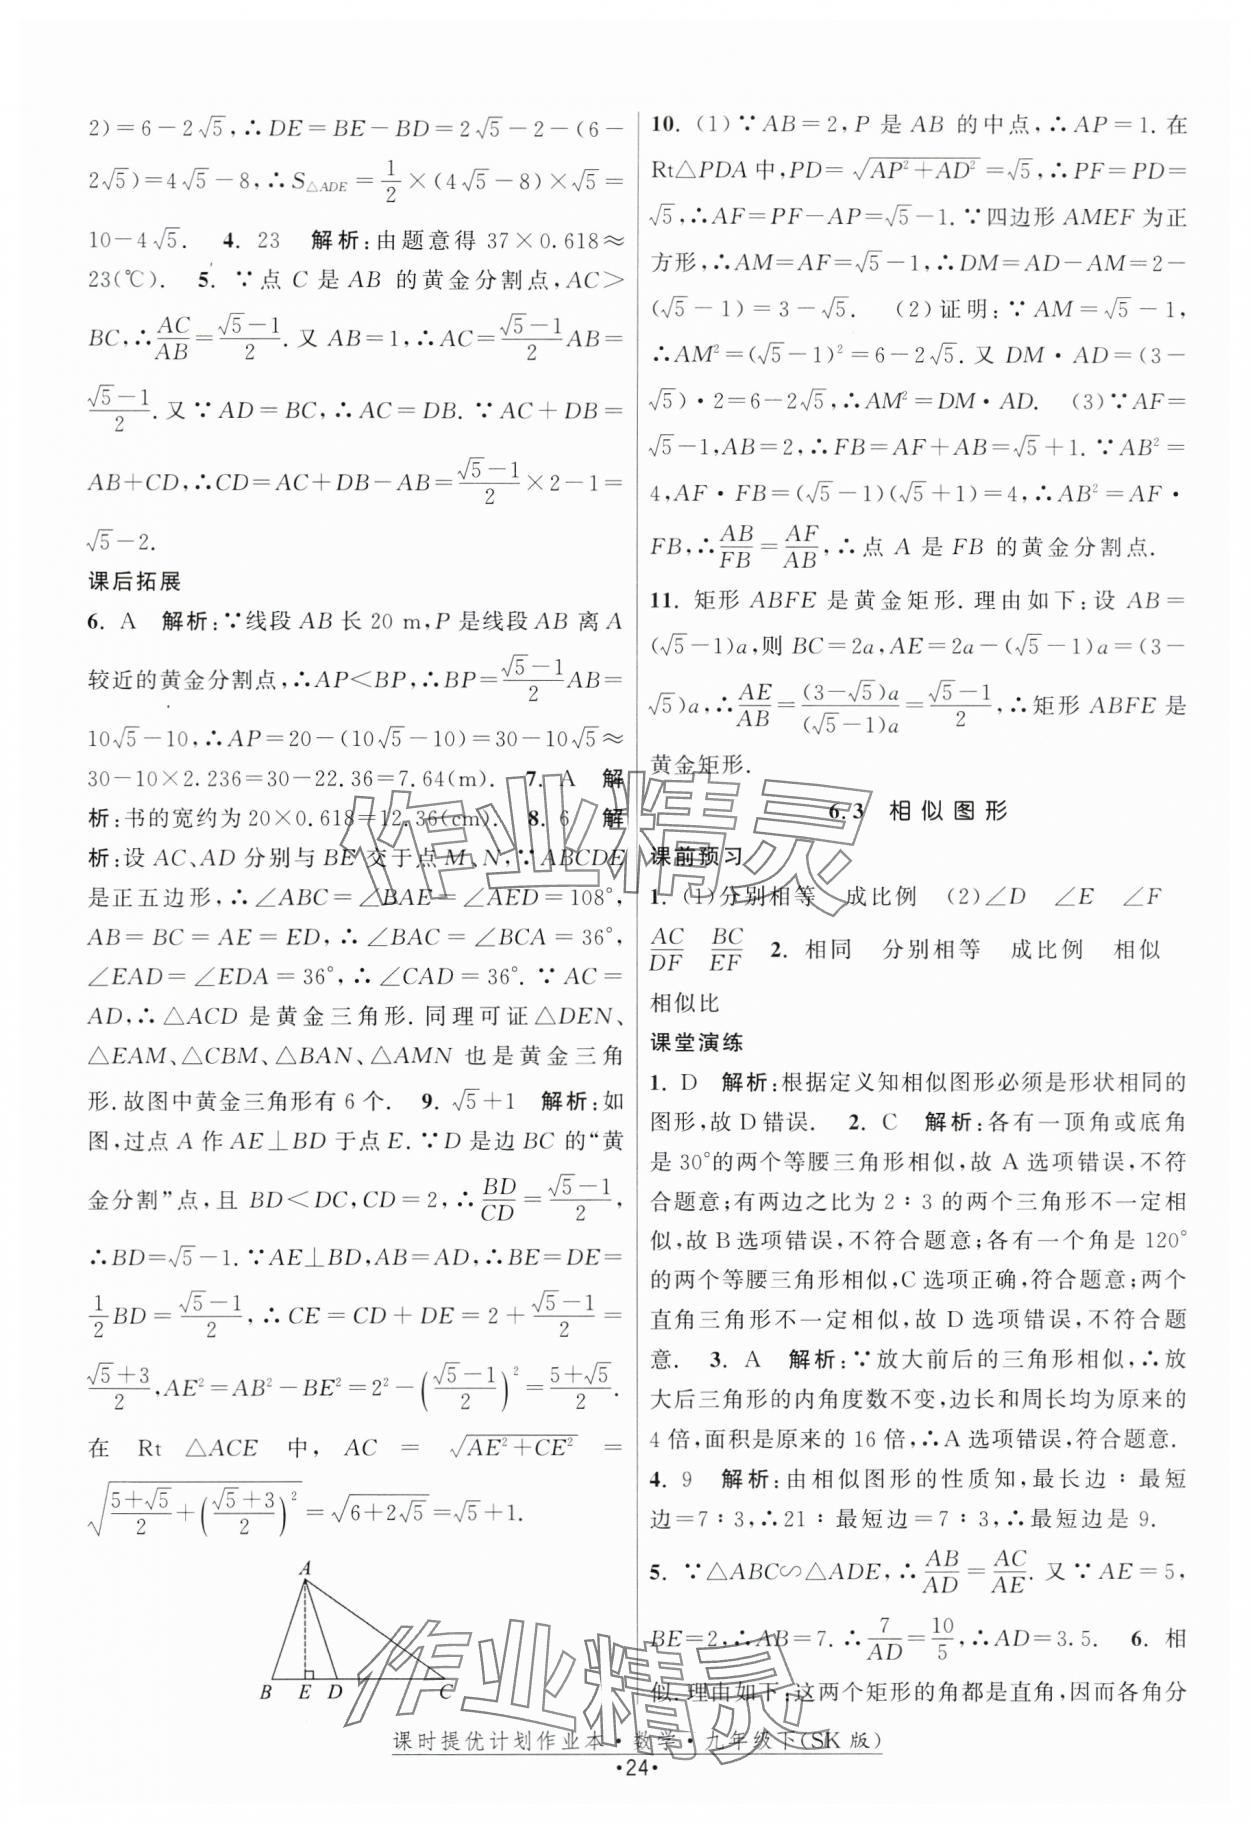 2)=6-2√5,∴DE=BE-BD=2√5-2-(6-
2√5)=4√5-8,∴S△ADE=1/2×(4√5-8)×√5=
10-4√5. 4. 23 解析:由题意得 37×0.618≈
23(℃). 5. ∵点 C 是 AB 的黄金分割点,AC>
BC,∴AC/AB=(√5-1)/2.又 AB=1,∴AC=(√5-1)/2 AB=
(√5-1)/2.又∵AD=BC,∴AC=DB.∵AC+DB=
AB+CD,∴CD=AC+DB-AB=(√5-1)/2×2-1=
√5-2.
课后拓展
6. A 解析:∵线段 AB 长 20 m,P 是线段 AB 离 A
较近的黄金分割点,∴AP<BP,∴BP=(√5-1)/2 AB=
10√5-10,∴AP=20-(10√5-10)=30-10√5≈
30-10×2.236=30-22.36=7.64(m). 7. A 解
析:书的宽约为 20×0.618=12.36(cm). 8. 6 解
析:设 AC、AD 分别与 BE 交于点 M、N,∵ABCDE
是正五边形,∴∠ABC=∠BAE=∠AED=108°,
AB=BC=AE=ED,∴∠BAC=∠BCA=36°,
∠EAD=∠EDA=36°,∴∠CAD=36°.∵AC=
AD,∴△ACD 是黄金三角形.同理可证△DEN、
△EAM、△CBM、△BAN、△AMN 也是黄金三角
形.故图中黄金三角形有 6 个. 9. √5+1 解析:如
图,过点 A 作 AE⊥BD 于点 E.∵D 是边 BC 的“黄
金分割”点,且 BD<DC,CD=2,∴BD/CD=(√5-1)/2,
∴BD=√5-1.∵AE⊥BD,AB=AD,∴BE=DE=
1/2 BD=(√5-1)/2,∴CE=CD+DE=2+(√5-1)/2=
(√5+3)/2,AE²=AB²-BE²=2²-((√5-1)/2)²=(5+√5)/2.
在 Rt △ACE 中, AC = √(AE²+CE²) =
√((5+√5)/2+((√5+3)/2)²)=√(6+2√5)=√5+1.
A
B E D C
10. (1)∵AB=2,P 是 AB 的中点,∴AP=1.在
Rt△PDA 中,PD=√(AP²+AD²)=√5,∴PF=PD=
√5,∴AF=PF-AP=√5-1.∵四边形 AMEF 为正
方形,∴AM=AF=√5-1,∴DM=AD-AM=2-
(√5-1)=3-√5. (2)证明:∵AM=√5-1,
∴AM²=(√5-1)²=6-2√5.又 DM·AD=(3-
√5)·2=6-2√5,∴AM²=DM·AD. (3)∵AF=
√5-1,AB=2,∴FB=AF+AB=√5+1.∵AB²=
4,AF·FB=(√5-1)(√5+1)=4,∴AB²=AF·
FB,∴AB/FB=AF/AB,∴点 A 是 FB 的黄金分割点.
11. 矩形 ABFE 是黄金矩形.理由如下:设 AB=
(√5-1)a,则 BC=2a,AE=2a-(√5-1)a=(3-
√5)a,∴AE/AB=(3-√5)a/(√5-1)a=(√5-1)/2,∴矩形 ABFE 是
黄金矩形.
6.3 相似图形
课前预习
1. (1)分别相等 成比例 (2)∠D ∠E ∠F
AC/DF BC/EF 2. 相同 分别相等 成比例 相似
相似比
课堂演练
1. D 解析:根据定义知相似图形必须是形状相同的
图形,故 D 错误. 2. C 解析:各有一顶角或底角
是 30°的两个等腰三角形相似,故 A 选项错误,不符
合题意;有两边之比为 2∶3 的两个三角形不一定相
似,故 B 选项错误,不符合题意;各有一个角是 120°
的两个等腰三角形相似,C 选项正确,符合题意;两个
直角三角形不一定相似,故 D 选项错误,不符合题
意. 3. A 解析:∵放大前后的三角形相似,∴放
大后三角形的内角度数不变,边长和周长均为原来的
4 倍,面积是原来的 16 倍,∴A 选项错误,符合题意.
4. 9 解析:由相似图形的性质知,最长边∶最短
边=7∶3,∴21∶最短边=7∶3,∴最短边是 9.
5. ∵△ABC∽△ADE,∴AB/AD=AC/AE.又∵AE=5,
BE=2,∴AB=7.∴7/AD=10/5,∴AD=3.5. 6. 相
似.理由如下:这两个矩形的角都是直角,因而各角分
作业精灵
作业精灵
课时提优计划作业本·数学·九年级下(SK 版)
·24·